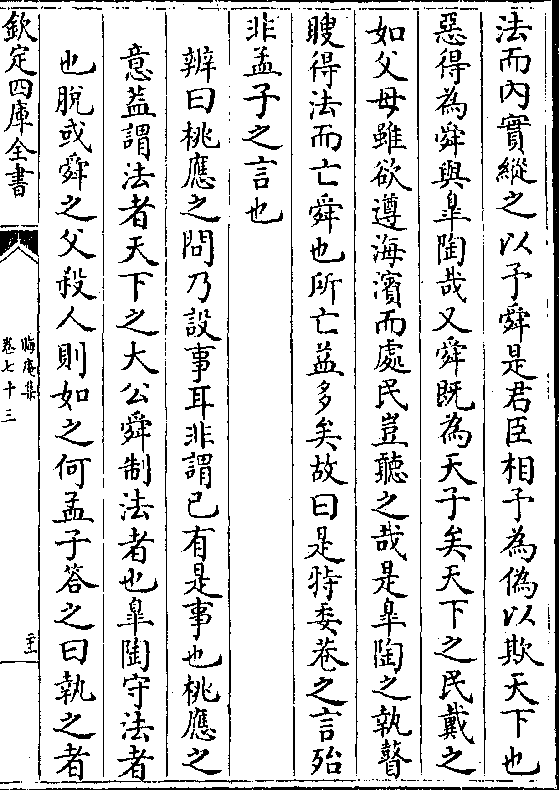 法而內實縱之以予舜是君臣相予為偽以欺天下也
惡得為舜與皐陶哉又舜既為天子矣天下之民戴之
如父母雖欲遵海濱而處民豈聽之哉是皐陶之執瞽
瞍得法而亡舜也所亡益多矣故曰是特委巷之言殆
非孟子之言也
辨曰桃應之問乃設事耳非謂已有是事也桃應之
意葢謂法者天下之大公舜制法者也皐陶守法者
也脱或舜之父殺人則如之何孟子答之曰執之者
欽定四庫全書
晦庵集
卷七十三